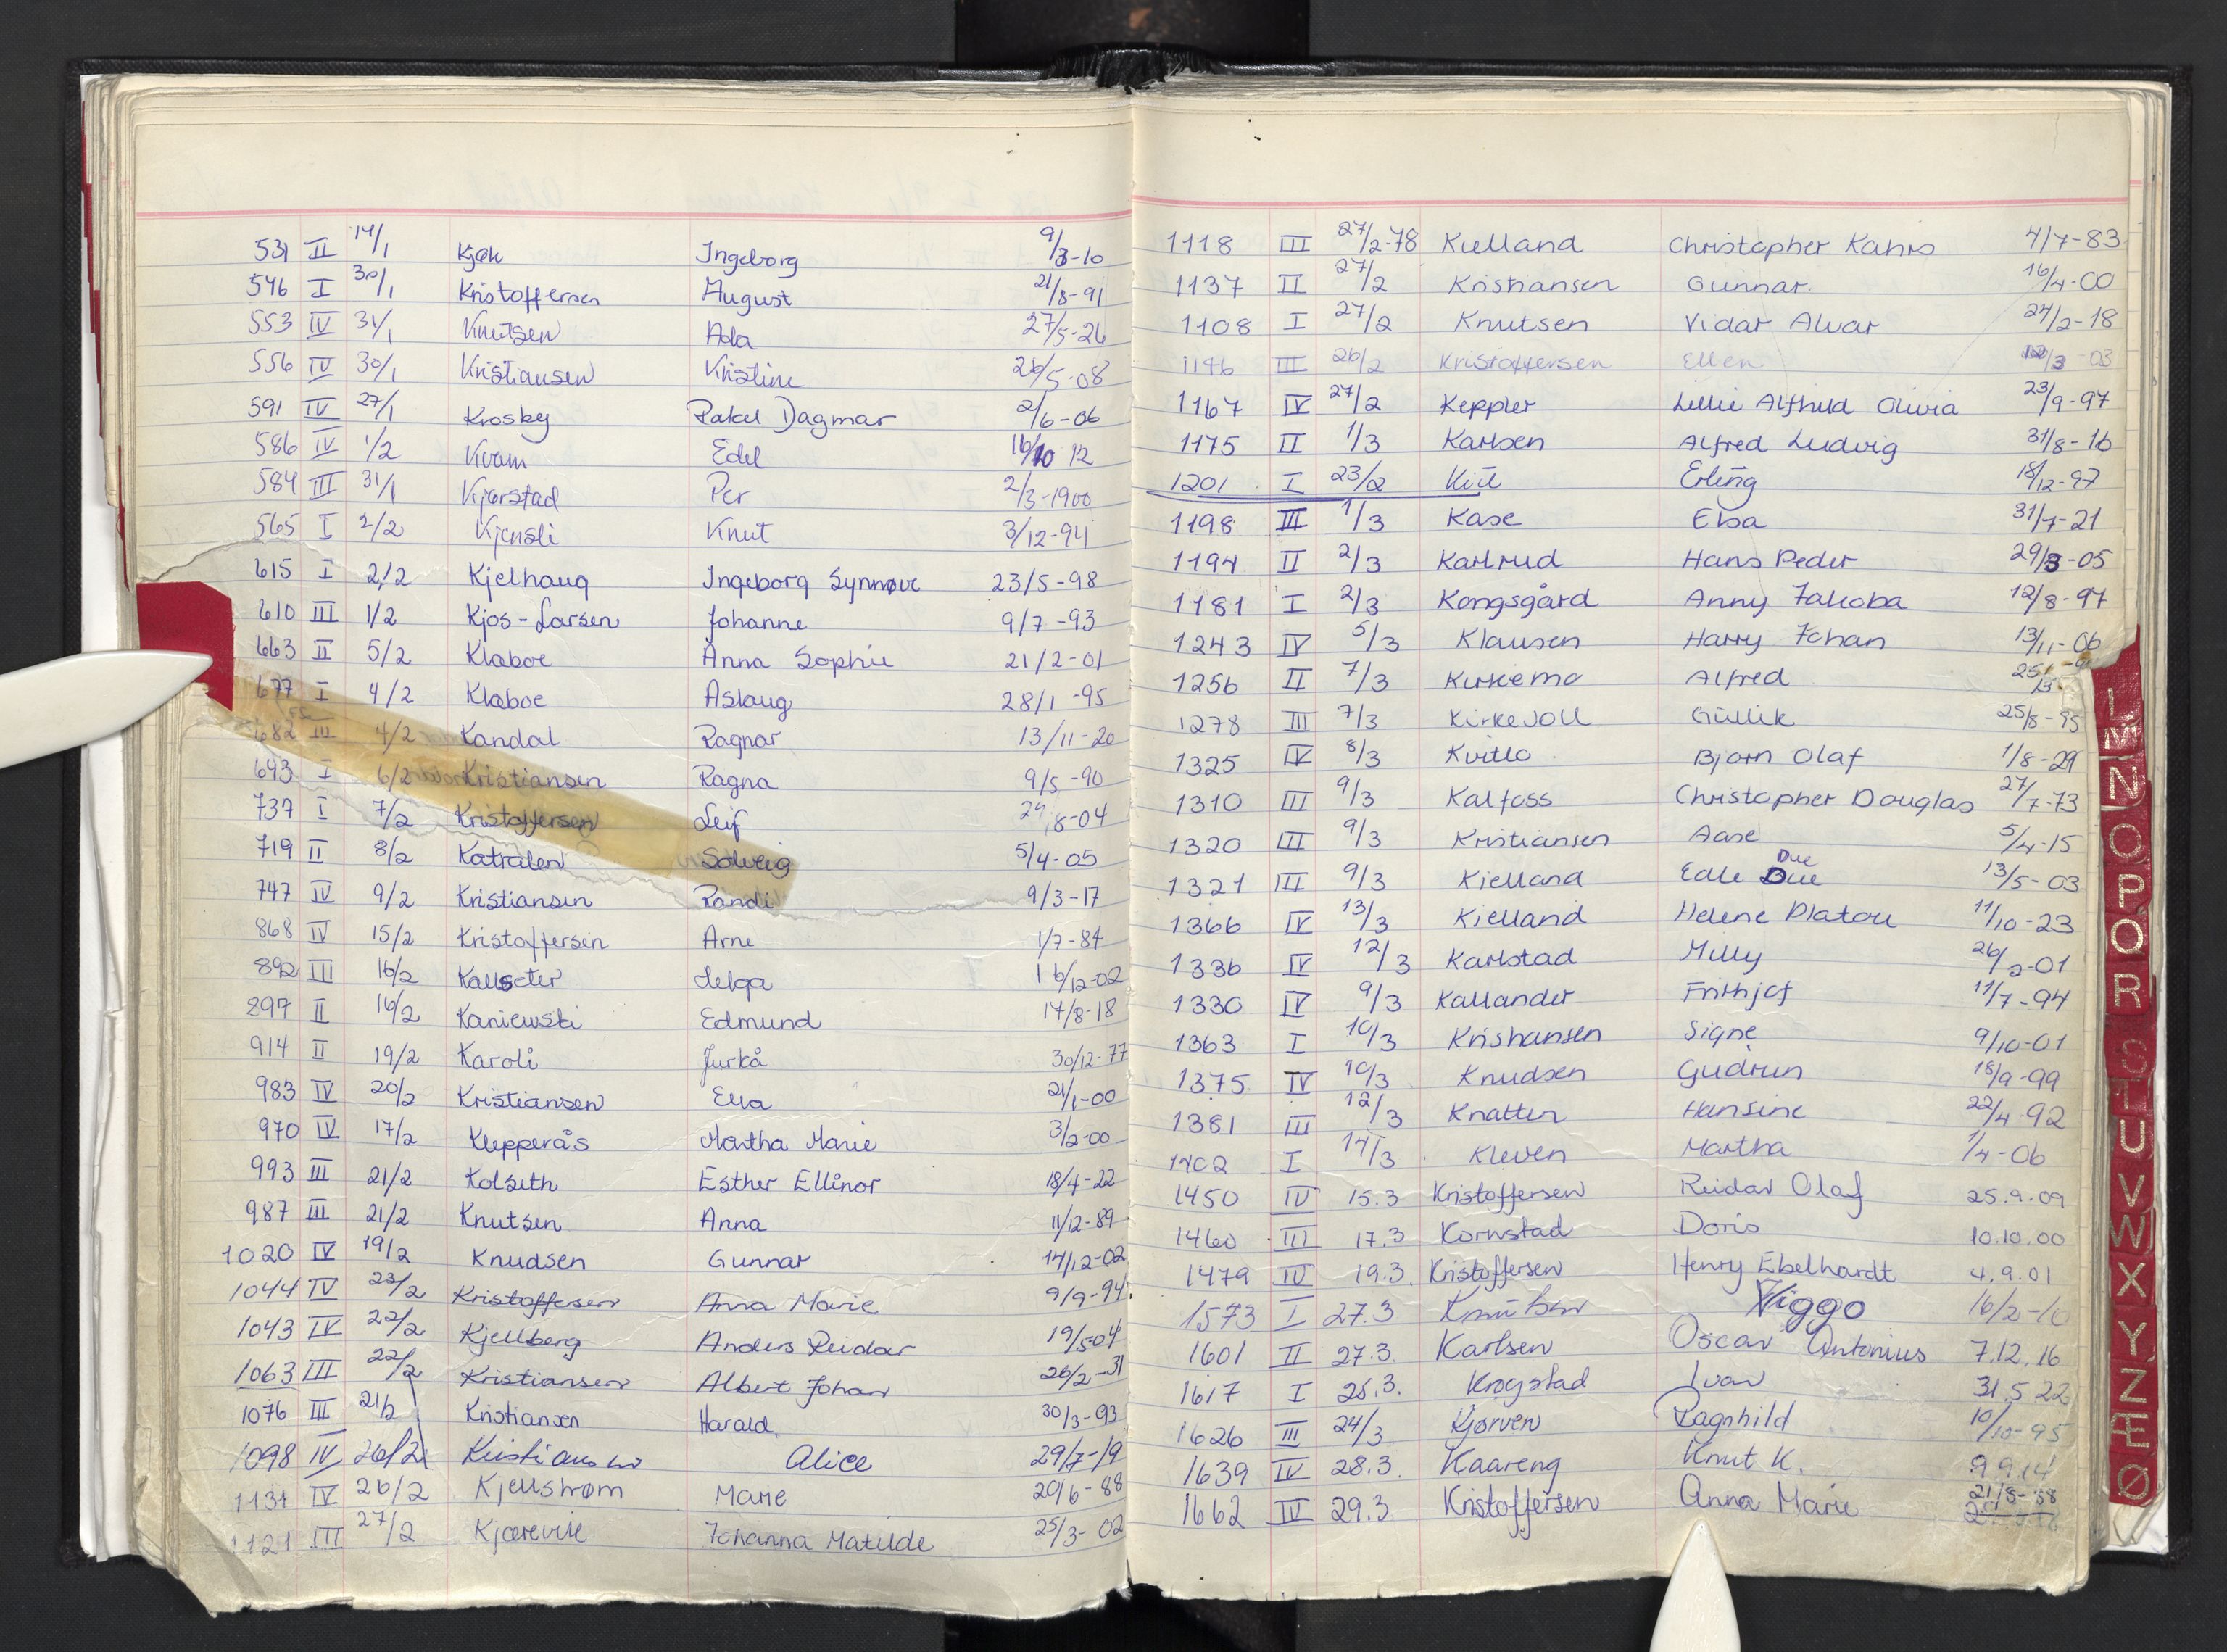 531 II 14/1 Kjøk Ingeborg 9/3-10
546 I 30/1 Kristoffersen August 21/8-91
553 IV 31/1 Knutsen Ada 27/5-26
556 IV 30/1 Kristiansen Kristine 26/5-08
591 IV 27/1 Krosby Rakel Dagmar 2/6-06
586 IV 1/2 Kvam Edel 16/10 12
584 III 31/1 Kjørstad Per 2/3-1900
565 I 2/2 Kjensli Knut 3/12-94
615 I 2/2 Kjelhaug Ingeborg Synnøve 23/5-98
610 III 1/2 Kjos-Larsen Johanne 9/7-93
663 II 5/2 Klæboe Anna Sophie 21/2-01
677 I 4/2 Klæboe Aslaug 28/1-95
682 III 4/2 Kandal Ragnar 13/11-20
693 I 6/2 Kristiansen Ragna 9/5-90
737 I 7/2 Kristoffersen Leif 29/8-04
719 II 8/2 Katralen Solveig 5/4-05
747 IV 9/2 Kristiansen Randi 9/3-17
868 IV 15/2 Kristoffersen Arne 1/7-84
892 III 16/2 Kallseter Helga 16/12-02
897 II 16/2 Kaniewski Edmund 17/8-18
914 II 19/2 Karoli Jurkå 30/12-77
983 IV 20/2 Kristiansen Ella 21/1-00
970 IV 17/2 Klepperås Martha Marie 3/2-00
993 III 21/2 Kolseth Esther Ellinor 18/4-22
987 III 21/2 Knutsen Anna 11/12-89
1020 IV 19/2 Knudsen Gunnar 14/12-02
1044 IV 23/2 Kristoffersen Anna Marie 9/9-94
1043 IV 22/2 Kjellberg Anders Reidar 19/5-04
1063 III 22/2 Kristiansen Albert Johan 26/2-31
1076 III 21/2 Kristiansen Harald 30/3-93
1098 IV 26/2 Kristiansen Alice 29/7-19
1131 IV 26/2 Kjellstrøm Marie 20/6-88
1121 III 27/2 Kjærevik Johanna Matilde 25/3-02
1118 III 27/2-78 Kielland Christopher Kahrs 4/7-83
1137 II 27/2 Kristiansen Gunnar 16/4-00
1108 I 27/2 Knutsen Vidar Alvar 24/2-18
1146 III 26/2 Kristoffersen Ellen 12/3-03
1167 IV 27/2 Keppler Lillie Alfhild Olivia 23/9-97
1175 II 1/3 Karlsen Alfred Ludvig 31/8-16
1201 I 23/2 Kiil Erling 18/12-97
1198 III 1/3 Kase Elsa 31/7-21
1194 II 2/3 Karlrud Hans Peder 29/3-05
1181 I 2/3 Kongsgård Anny Jakoba 12/8-97
1243 IV 5/3 Klausen Harry Johan 13/11-06
1256 II 7/3 Kirkemo Alfred
1278 III 7/3 Kirkevoll Gullik 25/8-95
1325 IV 8/3 Kvitlo Bjørn Olaf 1/8-29
1310 III 9/3 Kalfoss Christopher Douglas 27/7-73
1320 III 9/3 Kristiansen Aase 5/4-15
Due
1321 III 9/3 Kielland Edle Due 13/5-03
1366 IV 13/3 Kielland Helene Platou 11/10-23
1336 IV 12/3 Karlstad Milly 26/2-01
1330 IV 9/3 Kallander Frithjof 11/7-94
1363 I 10/3 Kristiansen Signe 9/10-01
1375 IV 10/3 Knudsen Gudrun 18/9-99
1381 III 12/3 Knatten Hansine 22/4-92
1402 I 14/3 Kleven Martha 1/4-06
1450 IV 15.3 Kristoffersen Reidar Olaf 25.9.09
1460 III 17.3 Kornstad Doris 10.10.00
1479 IV 19.3. Kristoffersen Henry Ebelhardt 4.9.01
1573 I 27.3 Knutsen Viggo 16/2-10
1601 II 27.3. Karlsen Oscar Antonius 7.12.16
1617 I 25.3. Krogstad Ivar 31.5 22
1626 III 24/3 Kjørven Ragnhild 10/10-95
1639 IV 28.3. Kaareng Knut K. 9.9.14
1662 IV 29.3 Kristoffersen Anna Marie 21/8-38
L
M
N
O
P
Q
R
S
T
U
V
W
X
Y
Z
Æ
Ø